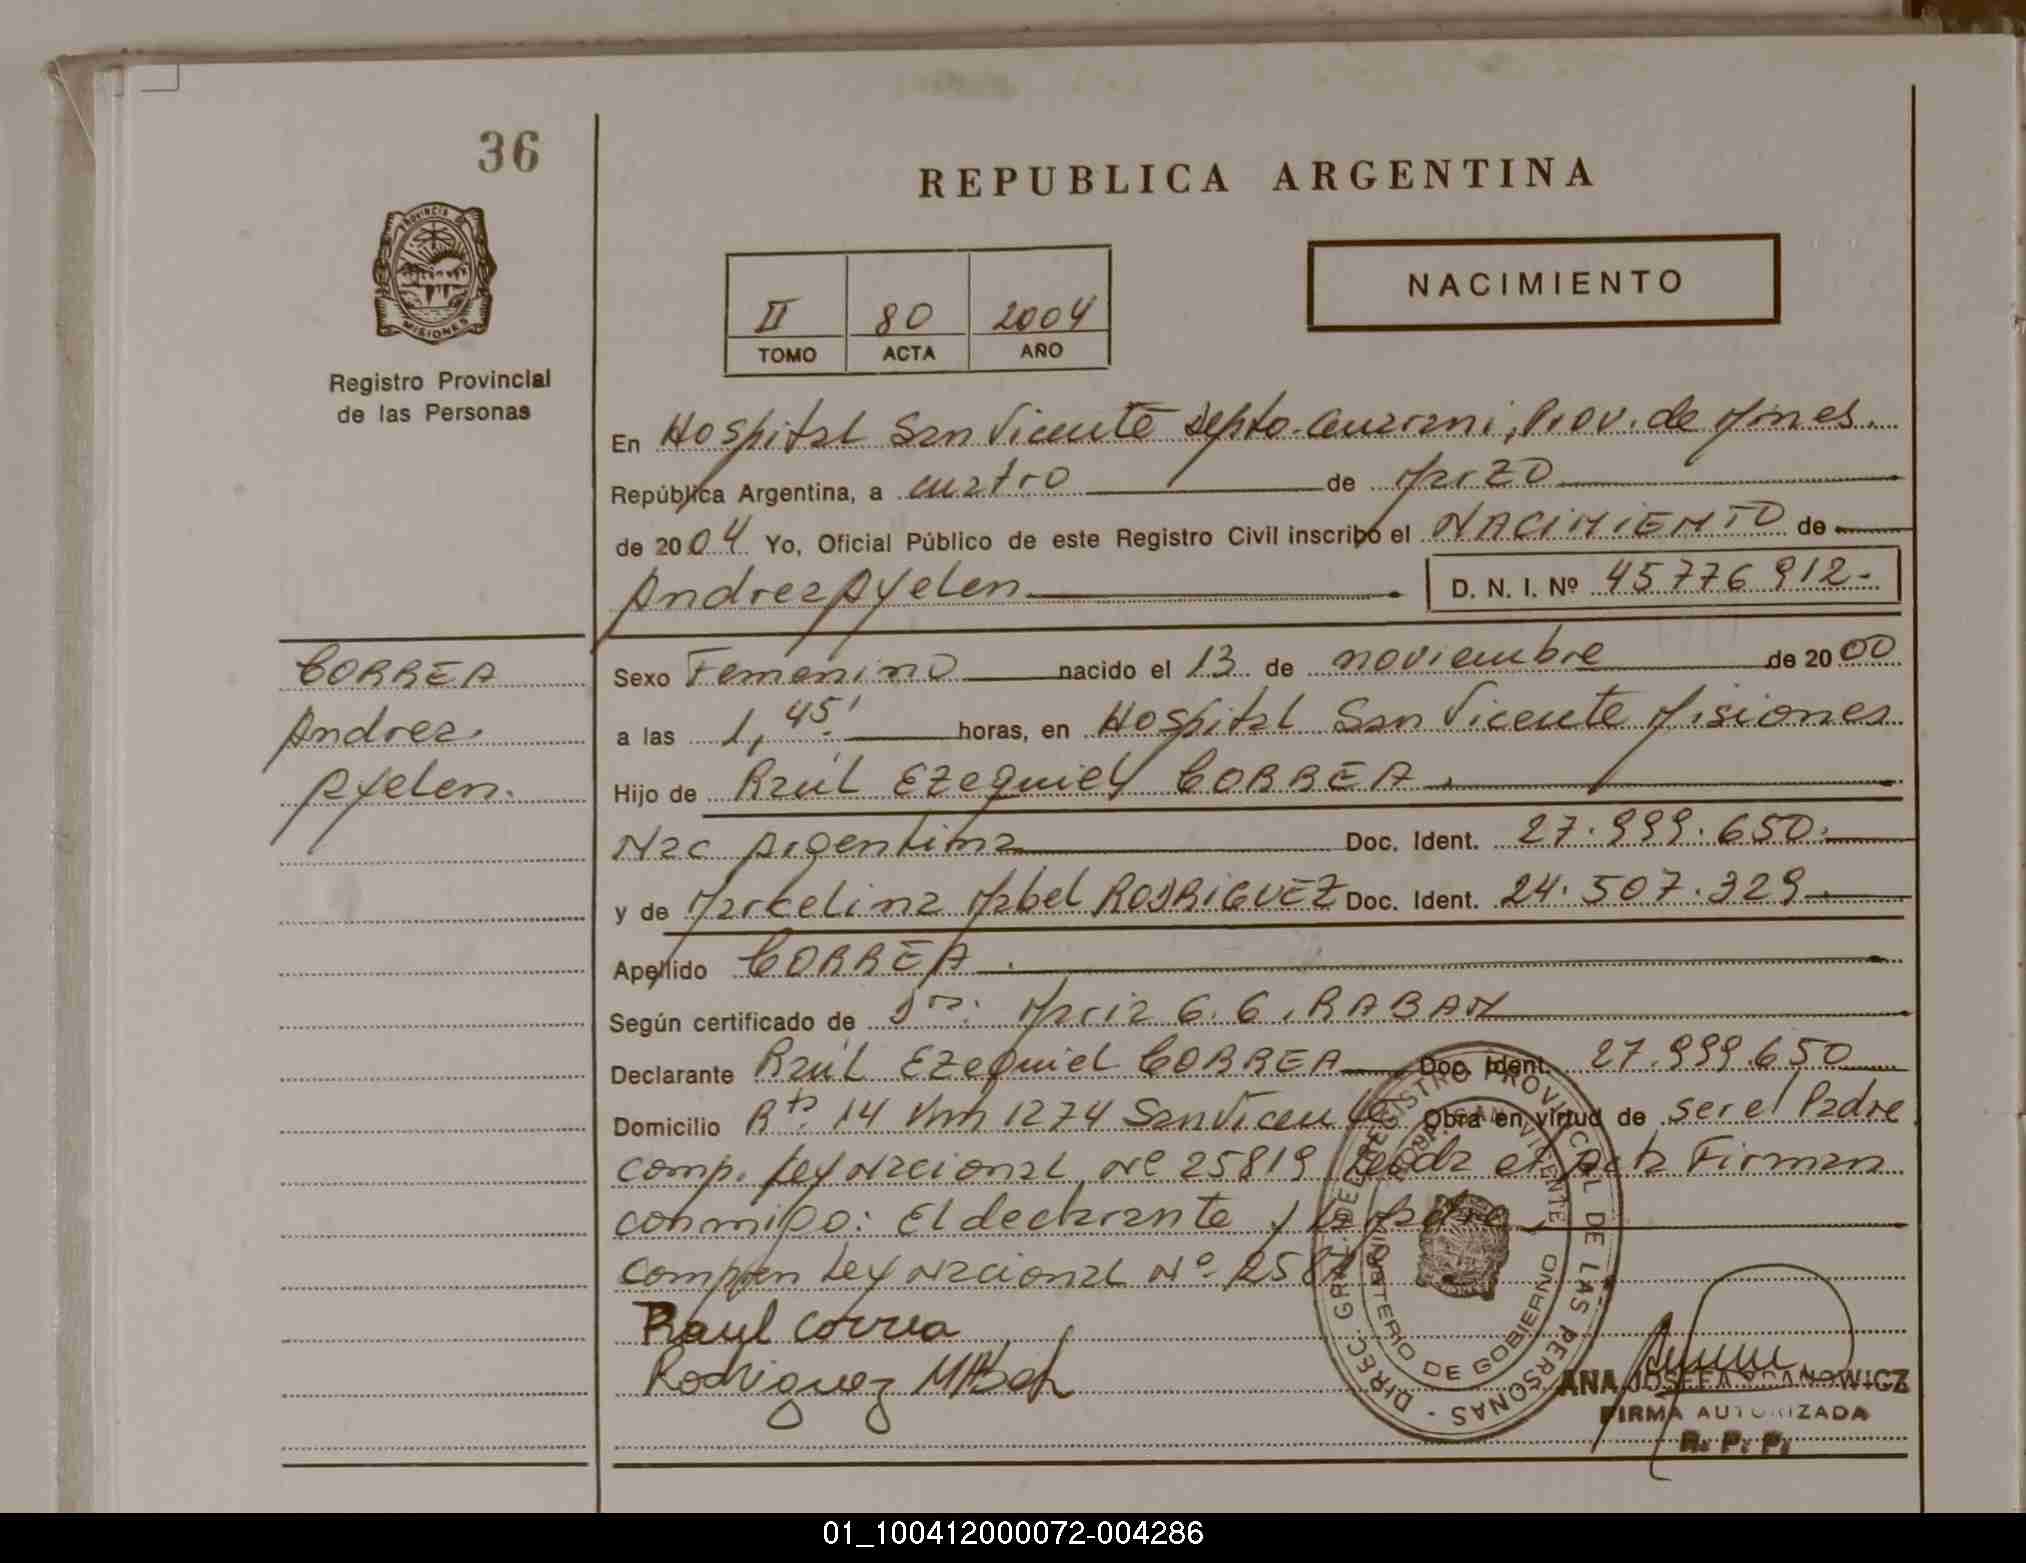 36
REPUBLICA ARGENTINA
PROVINCIA DE
MISIONES
NACIMIENTO
II 80 2004
TOMO ACTA AÑO
Registro Provincial
de las Personas
En Hospital San Vicente Depto. Guarani, Prov. de Mnes.
República Argentina, a cuatro de Marzo
de 2004 Yo, Oficial Público de este Registro Civil inscribo el NACIMIENTO de
Andrea Ayelen D. N. I. Nº 45776912-
CORREA
Andrea
Ayelen.
Sexo Femenino nacido el 13 de noviembre de 2000
a las 1,45' horas, en Hospital San Vicente Misiones
Hijo de Raúl Ezequiel CORREA.
Nac Argentina Doc. Ident. 27.999.650.
y de Marcelina Mabel RODRIGUEZ Doc. Ident. 24.507.329.
Apellido CORREA.
Según certificado de Dra. Maria G. G. RABAN
Declarante Raúl Ezequiel CORREA Doc. Ident. 27.999.650
Domicilio Rta. 14 Km 1274 San Vicente Obra en virtud de ser el Padre
comp. Ley Nacional Nº 25819 Leida el Acta Firman
conmigo: El declarante y la Madre
Ley Nacional Nº
Raul Correa
Rodriguez MABel
DIREC. GRAL. DEL REGISTRO PROVINCIAL DE LAS PERSONAS -
SAN VICENTE
MINISTERIO DE GOBIERNO
ANA JOSEFA
FIRMA AUTORIZADA
R. P. P.
01_100412000072-004286